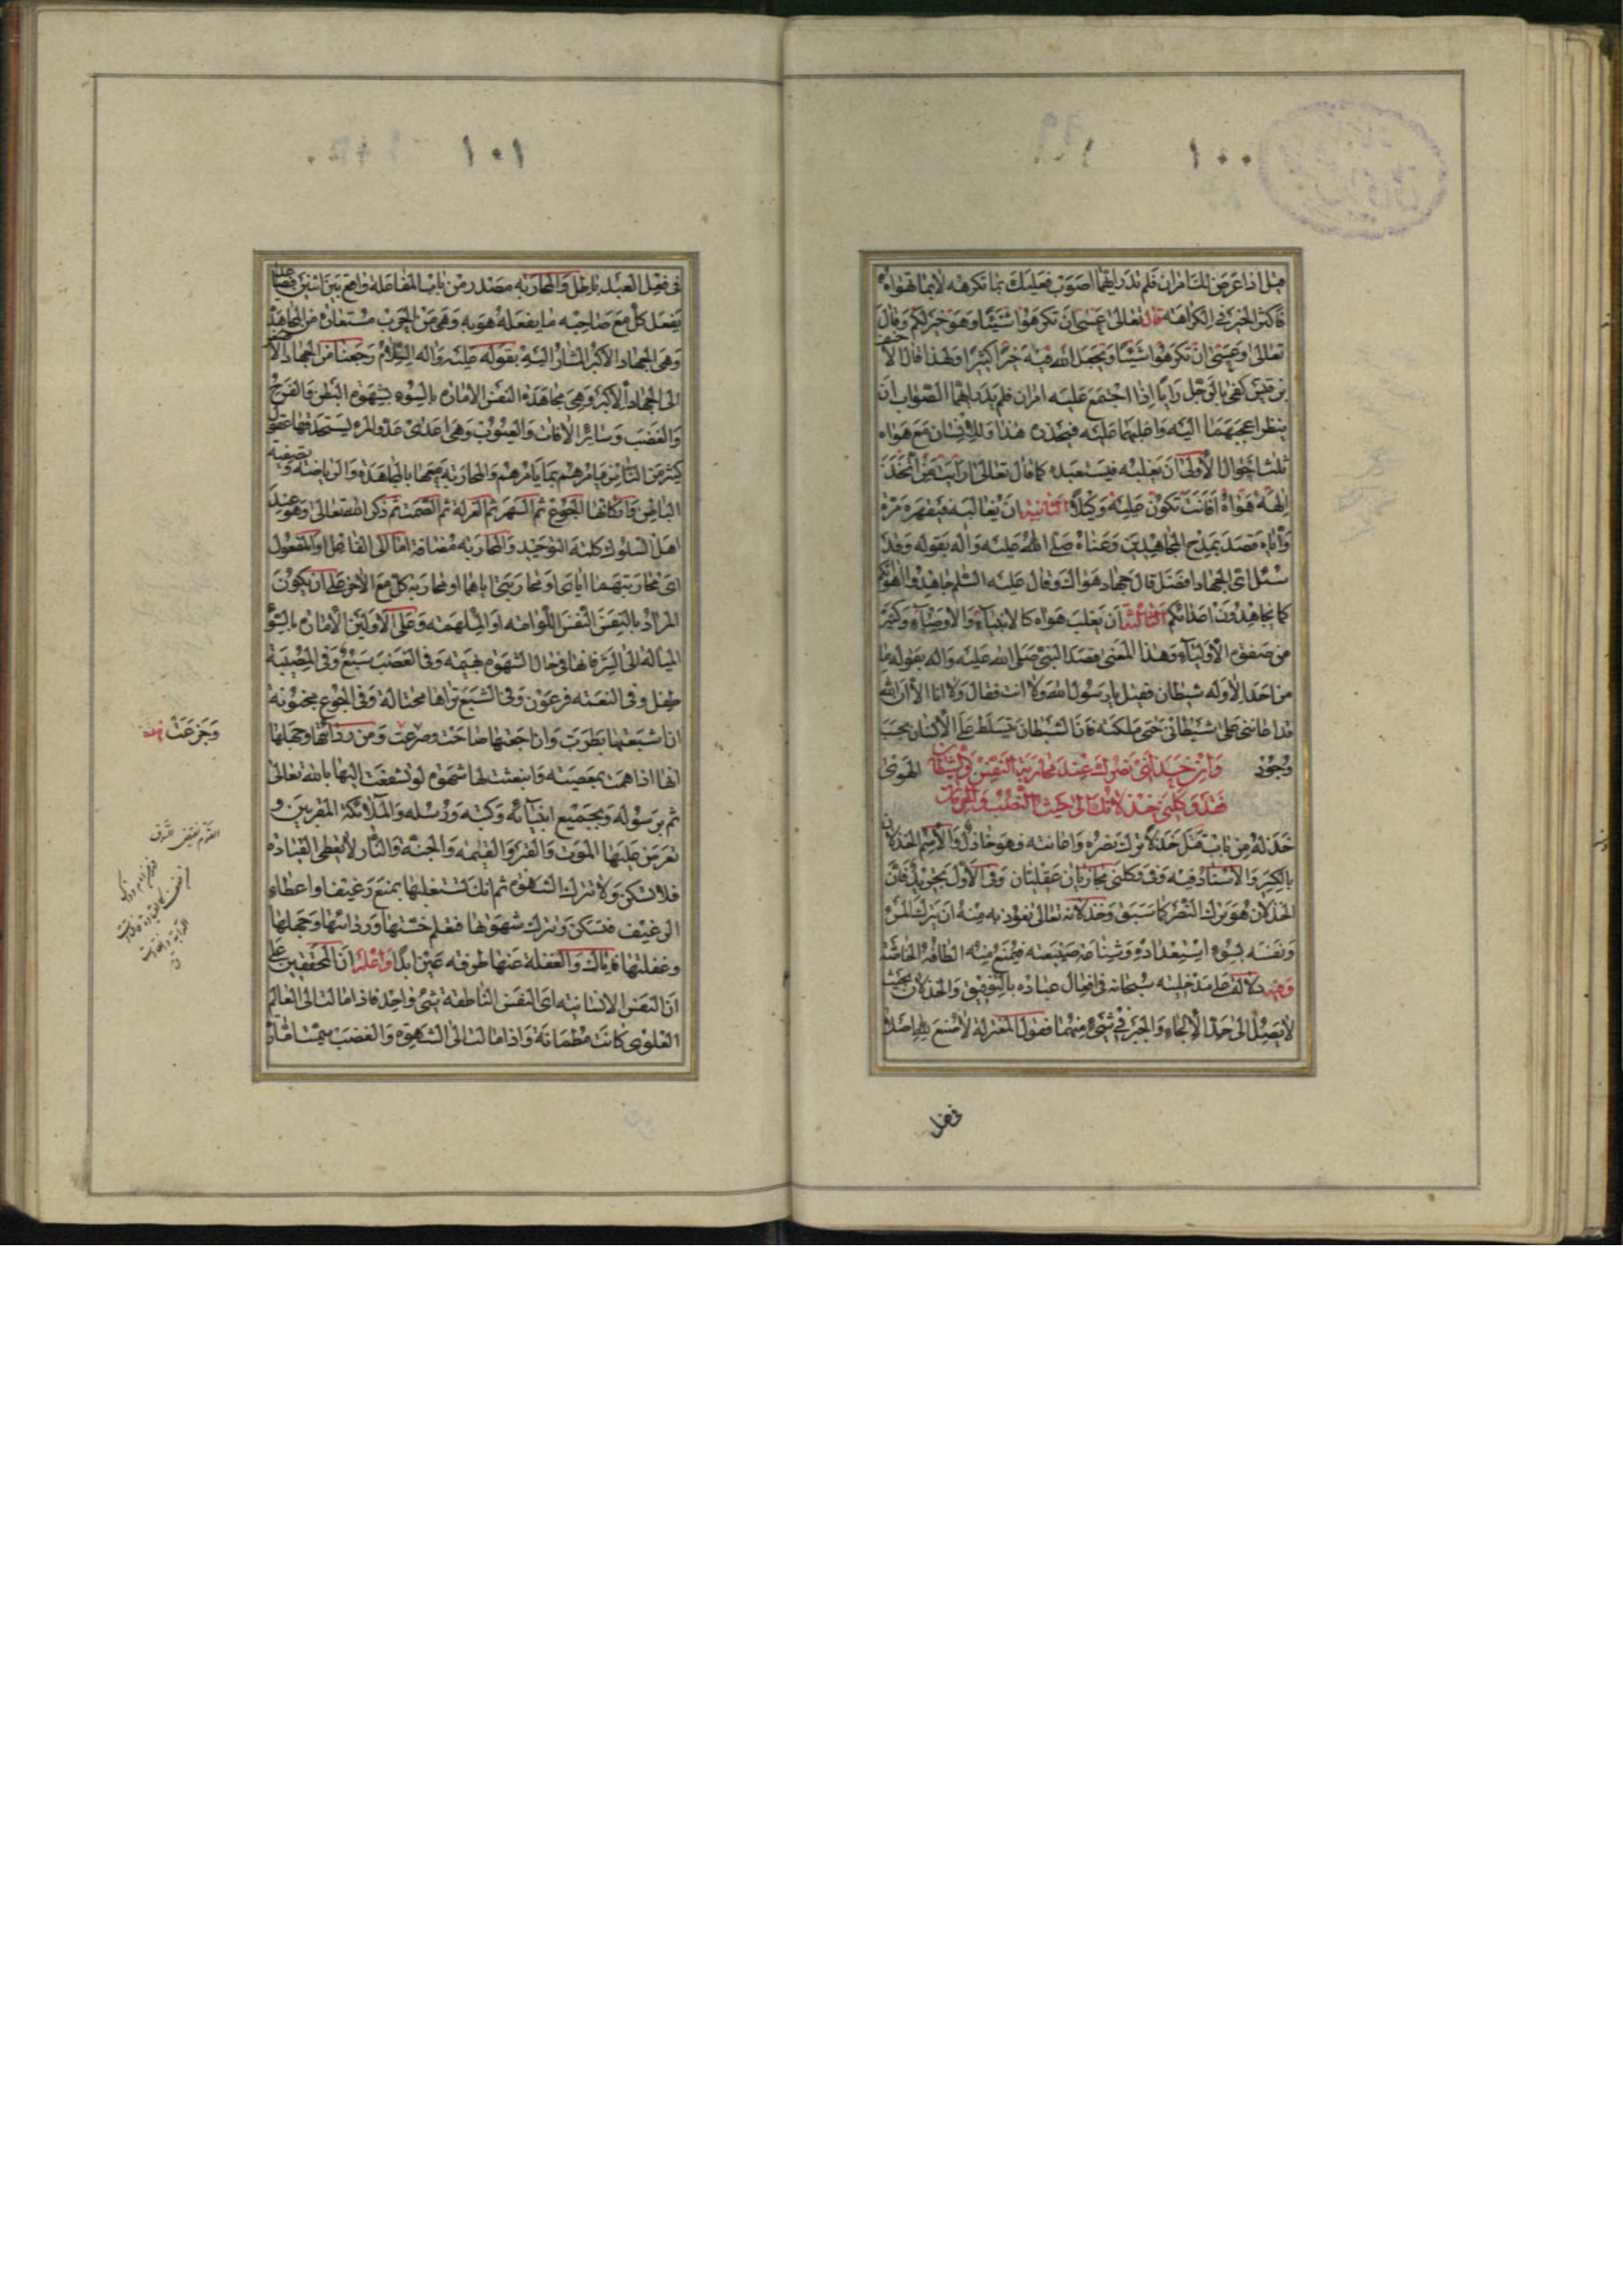 ١٠٠
قيل اذا عرض لك امران فلم تدر ايهما اصوب فعليك بما تكرهه لا بما تهواه
فاكثر الخير فى الكراهة قال تعالى عسى ان تكرهوا شيئا وهو خير لكم وقال
تعالى وعسى ان تكرهوا شيئا ويجعل الله فيه خيرا كثيرا ولهذا قال الا حنف
بن قيس كفى بالرجل رايا اذا اجتمع عليه امران فلم يدر ايهما الصواب ان
ينظر اعجبهما اليه واغلبهما عليه فيحذره هذا وللانسان مع هواه
ثلث احوال الاولى ان يغلبه فيستعبده كما قال تعالى ارايت من اتخذ
الهه هواه افانت تكون عليه وكيلا الثانية ان يغالبه فيقهره مرة
واياه قصد بمدح المجاهدين وعناه صلى الله عليه واله بقوله وقد
سئل اى الجهاد افضل قال جهاد هواك وقال عليه السلم جاهدوا اهوائكم
كما تجاهدون اعدائكم الثالثة ان يغلب هواه كالانبياء والاوصياء وكثير
من صفوة الاولياء وهذا المعنى قصد النبى صلى الله عليه واله بقوله ما
من احد الا وله شيطان فقيل يا رسول الله ولا انت فقال ولا انا الا ان الله
قد اعاننى على شيطانى حتى ملكته فان الشيطان يتسلط على الانسان بحسب
وجود الهوى وان خذلنى نصرك عند محاربة النفس والشيطان
فقد وكلنى خذلانك الى حيث النصب والحرمان
خذله من باب قتل خذلا ترك نصره واعانته فهو خاذل والاسم الخذلان
بالكسر والاسناد فيه وفى وكلنى مجازيان عقليان وفى الاول تجريد فان
الخذلان هو ترك النصر كما سبق وخذلانه تعالى نعوذ به منه ان يترك المرء
ونفسه بسوء استعداده
وفيه دلالة على مدخليته سبحانه فى افعال عباده بالتوفيق والخذلان بحيث
لا يصل الى حد الالجاء والجبر فى شىء منهما فقول المعتزلة لا صنع لله اصلا
فى فعل
١٠١
فى فعل العبد باطل والمحاربة مصدر من باب المفاعلة واقع بين اثنين
يفعل كل مع صاحبه ما يفعله هو به وهى من الحرب مستعارة من المجاهدة
وهى الجهاد الاكبر المشار اليه بقوله عليه واله السلام رجعنا من الجهاد الاصغر
الى الجهاد الاكبر وهى مجاهدة النفس الامارة بالسوء بشهوة البطن والفرج
والغضب وسائر الافات والعيوب وهى اعدى عدو المرء يستخدمها عقل
كثير من الناس فيامرهم بما يامرهم والمحاربة معها بالمجاهدة والرياضة وتصفية
الباطن واركانها الجوع ثم السهر ثم العزلة ثم الصمت ثم ذكر الله تعالى وهو عند
اهل السلوك كلمة التوحيد والمحاربة مضافة اما الى الفاعل او المفعول
اى محاربتهما اياى او محاربتى اياهما او محاربة كل مع الاخر على ان يكون
المراد بالنفس النفس اللوامة او الملهمة وعلى الاولين الامارة بالسوء
الميالة الى الشر فانها فى حال الشهوة بهيمة وفى الغضب سبع وفى المصيبة
طفل وفى النعمة فرعون وفى الشبع تراها مختالة وفى الجوع مجنونة
ان اشبعتها بطرت وان اجعتها صاحت وصرعت ومن رذالتها وجهلها
انها اذا همت بمعصية وانبعثت لها شهوة لو تشفعت اليها بالله تعالى
ثم برسوله وبجميع انبيائه وكتبه ورسله والملائكة المقربين و
تعرض عليها الموت والقبر والقيمة والجنة والنار لا تعطى القياده
فلا تسكن ولا تترك الشهوة ثم انك تستغلبها بمنع رغيف او اعطاء
الرغيف فتسكن وتترك شهوتها فتعلم خستها ورذالتها وجهلها
وغفلتها فاياك والغفلة عنها طرفة عين ابدا واعلم ان المحققين على
ان النفس الانسانية اى النفس الناطقة شىء واحد فاذا مالت الى العالم
العلوى كانت مطمئنة واذا مالت الى الشهوة والغضب سميت امارة
وجزعت